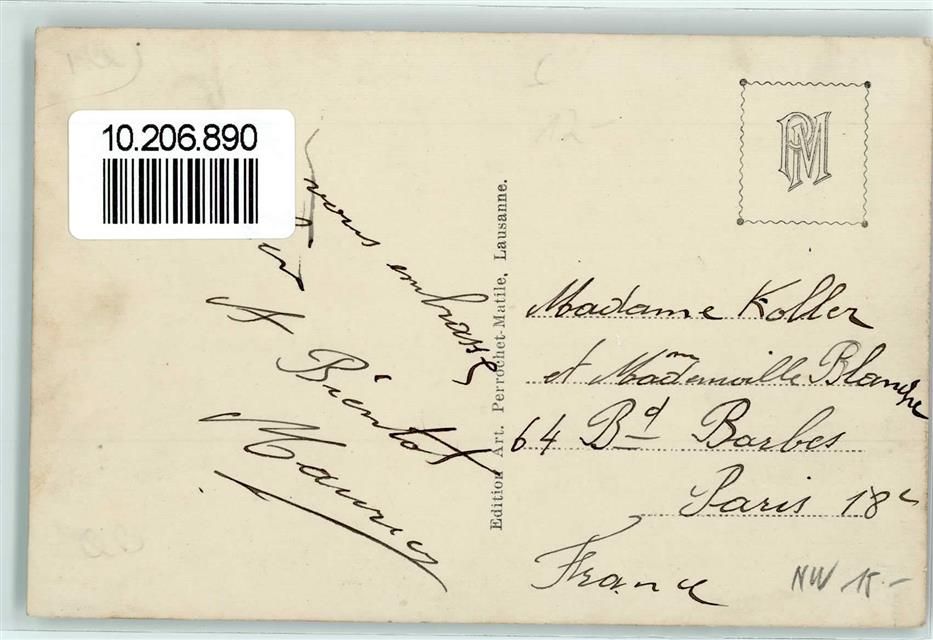 10.206.890
vous embrasse
A Bientot
Maurice
Edition Art. Perrochet-Matile, Lausanne.
PM
Madame Koller
et Mademoiselle Blanche
64 Bd Barbes
Paris 18e
France
NW 15-